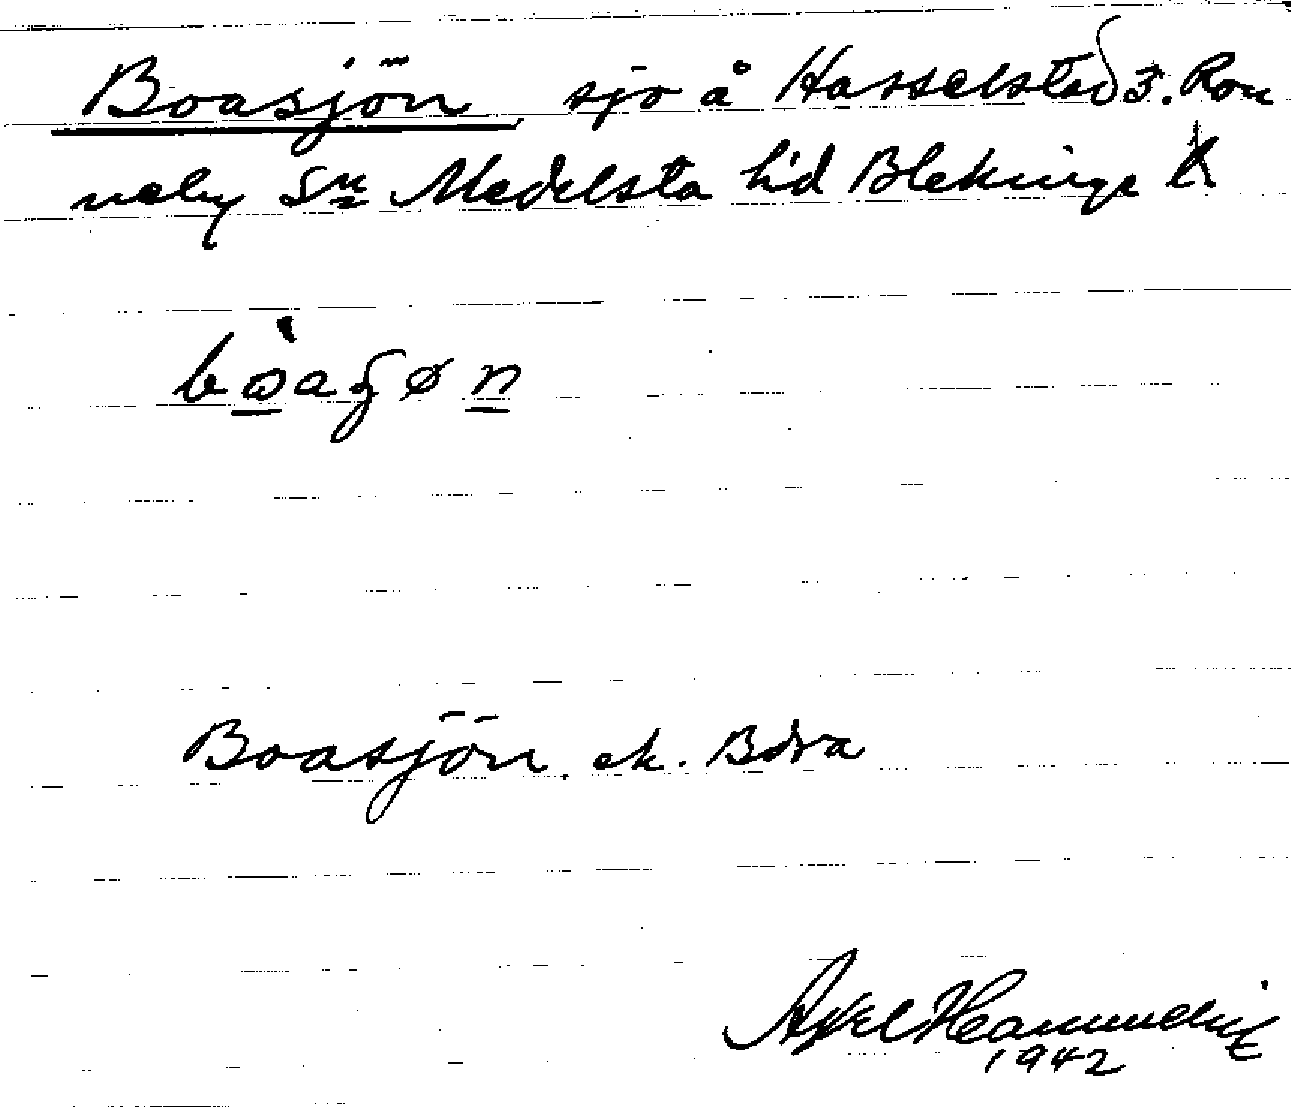 Boasjön sjö å Hasselstad 3. Ron
neby Sn Medelsta h'd Blekinge L
Boasjön. ek. Böra
Axel
1942